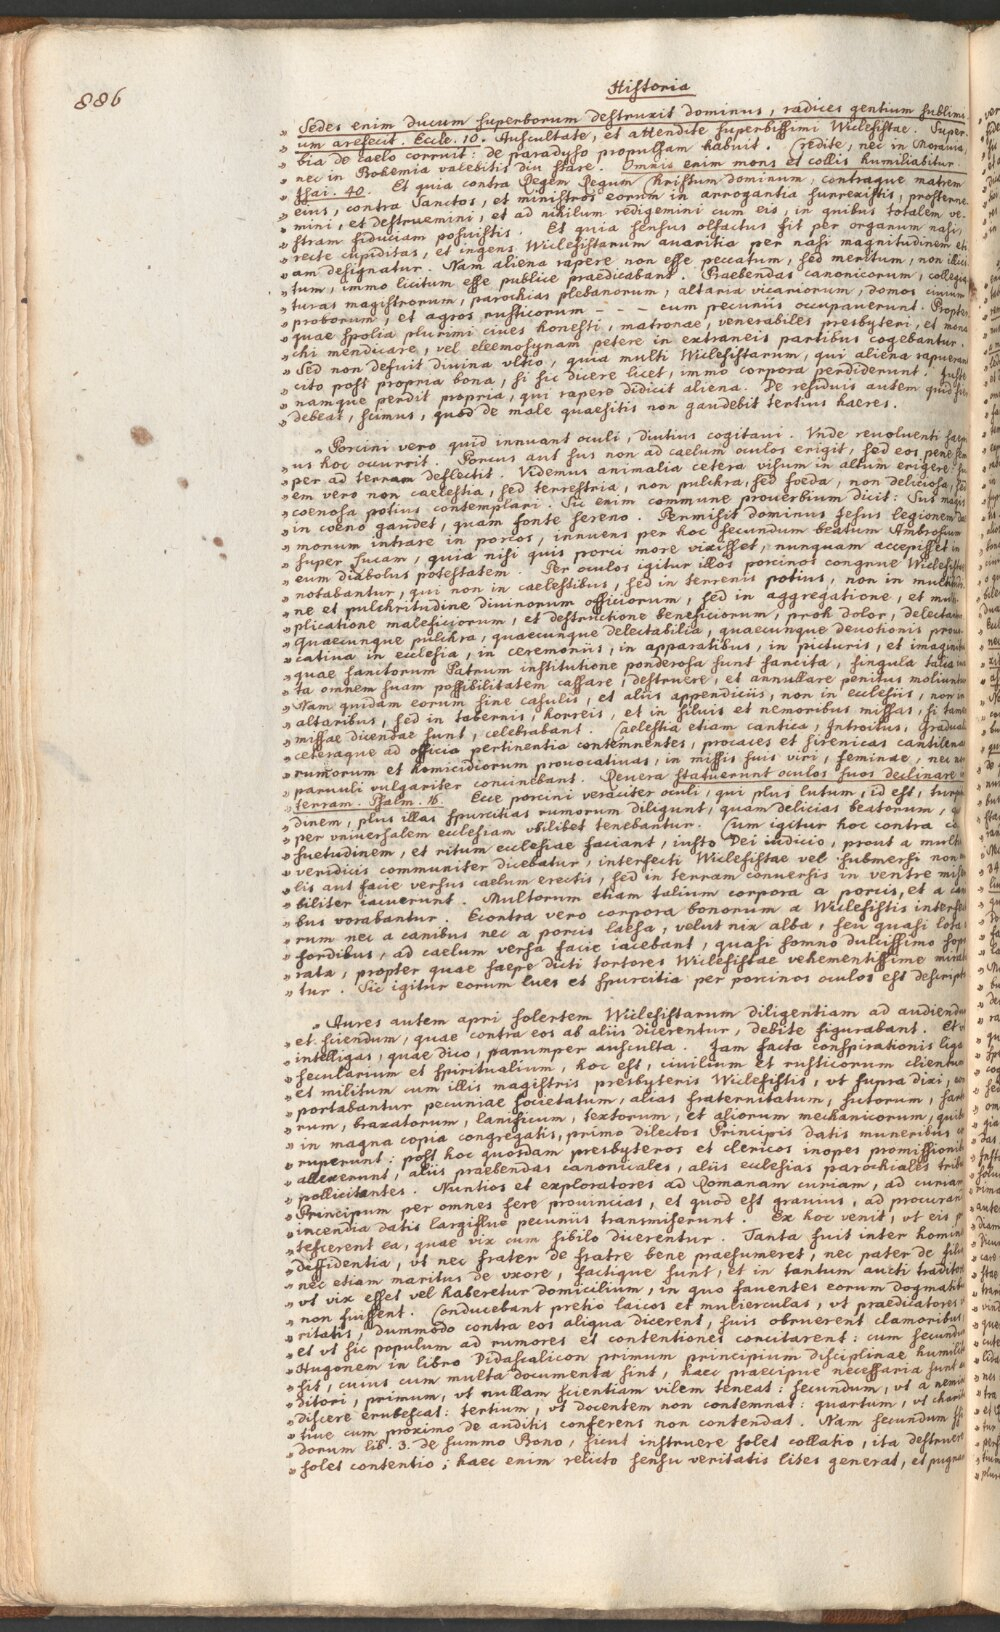 886
Historia
„ Sedes enim ducum superborum destruxit dominus, radices gentium sublimi
„ um arefecit. Eccle. 10. Auscultate, et attendite superbissimi Wiclefistae. Super
„ bia de caelo corruit: de paradyso propulsam habuit. Credite, nec in Morauia,
„ nec in Bohemia valebitis diu stare. Omnis enim mons et collis humiliabitur.
„ Isai. 40. Et quia contra Regem Regum Christum dominum, contraque matrem
„ eius, contra Sanctos, et ministros eorum in arrogantia surrexistis, prosterne
„ mini, et destruemini, et ad nihilum redigemini cum eis, in quibus totalem ve
„ stram fiduciam posuistis. Et quia sensus olfactus fit per organum nasi,
„ recte cupiditas, et ingens Wiclefistarum auaritia per nasi magnitudinem eti
„ am designatur. Nam aliena rapere non esse peccatum, sed meritum, non illici
„ tum, immo licitum esse publice praedicabant. Praebendas canonicorum, collegia
„ turas magistrorum, parochias plebanorum, altaria vicariorum, domos ciuium
„ proborum, et agros rusticorum - - - cum pecuniis occupauerunt. Propter
„ quae spolia plurimi ciues honesti, matronae, venerabiles presbyteri, et mona
„ chi mendicare, vel eleemosynam petere in extraneis partibus cogebantur.
„ Sed non defuit diuina vltio, quia multi Wiclefistarum, qui aliena rapuerant
„ cito post propria bona, si sic dicere licet, immo corpora perdiderunt. Iuste
„ namque perdit propria, qui rapere didicit aliena. De residuis autem quid fieri
„ debeat, scimus, quod de male quaesitis non gaudebit tertius haeres.
„ Porcini vero quid innuant oculi, diutius cogitaui. Vnde reuoluenti saepi
„ us hoc occurrit. Porcus aut sus non ad caelum oculos erigit, sed eos pene sem
„ per ad terram deflectit. Videmus animalia cetera visum in altum erigere: su
„ em vero non caelestia, sed terrestria, non pulchra, sed foeda, non deliciosa, sed
„ coenosa potius contemplari. Sic enim commune prouerbium dicit: Sus magis
„ in coeno gaudet, quam fonte sereno. Permisit dominus Jesus legionem dae
„ monum intrare in porcos, innuens per hoc secundum beatum Ambrosium
„ super Lucam, quia nisi quis porci more vixisset, nunquam accepisset in
„ eum diabolus potestatem. Per oculos igitur illos porcinos congrue Wiclefistae
„ notabantur, qui non in caelestibus, sed in terrenis potius, non in multitudi
„ ne et pulchritudine diuinorum officiorum, sed in aggregatione, et multi
„ plicatione maleficiorum, et destructione beneficiorum, proh dolor, delectantur
„ Quaecunque pulchra, quaecunque delectabilia, quaecunque deuotionis prouo
„ catiua in ecclesia, in ceremoniis, in apparatibus, in picturis, et imaginibus
„ quae sanctorum Patrum institutione ponderosa sunt sancita, singula talia iux
„ ta omnem suam possibilitatem cassare, destruere, et annullare penitus moliuntur
„ Nam quidam eorum sine casulis, et aliis appendiciis, non in ecclesiis, non in
„ altaribus, sed in tabernis, horreis, et in siluis et nemoribus missas, si tamen
„ missae dicendae sunt, celebrabant. Caelestia etiam cantica, Introitus, Gradualia
„ ceteraque ad officia pertinentia contemnentes, procaces et sirenicas cantilenas
„ rumorum et homicidiorum prouocatiuas, in missis suis viri, feminae, nec non
„ paruuli vulgariter concinebant. Reuera statuerunt oculos suos declinare in
„ terram. Psalm. 16. Ecce porcini veraciter oculi, qui plus lutum, id est, turpitu
„ dinem, plus illas spurcitias rumorum diligunt, quam delicias beatorum, quae
„ per vniuersalem ecclesiam vbilibet tenebantur. Cum igitur hoc contra con
„ suetudinem, et ritum ecclesiae faciant, iusto Dei iudicio, prout a multis
„ veridicis communiter dicebatur, interfecti Wiclefistae vel submersi non
„ lis aut facie versus caelum erectis, sed in terram conuersis in ventre mise
„ biliter iacuerunt. Multorum etiam talium corpora a porcis, et a cani
„ bus vorabantur. Econtra vero corpora bonorum a Wiclefistis interfecto
„ rum nec a canibus nec a porcis laesa, velut nix alba, seu quasi lota
„ sordibus, ad caelum versa facie iacebant, quasi somno dulcissimo sopo
„ rata, propter quae saepe dicti tortores Wiclefistae vehementissime miraban
„ tur. Sic igitur eorum lues et spurcitia per porcinos oculos est descripta
„ Aures autem apri solertem Wiclefistarum diligentiam ad audiendum
„ et sciendum, quae contra eos ab aliis dicerentur, debite figurabant. Et vt
„ intelligas, quae dico, parumper ausculta. Jam facta conspirationis liga
„ secularium et spiritualium, hoc est, ciuilium et rusticorum clientum
„ et militum cum illis magistris presbyteris Wiclefistis, vt supra dixi, com
„ portabantur pecuniae societatum, alias fraternitatum, sutorum, sarto
„ rum, braxatorum, lanificum, textorum, et aliorum mechanicorum, quibus
„ in magna copia congregatis, primo dilectos Principis datis muneribus cor
„ ruperunt: post hoc quosdam presbyteros et clericos inopes promissionibus
„ allexerunt, aliis praebendas canonicales, aliis ecclesias parochiales tribui
„ pollicitantes. Nuntios et exploratores ad Romanam curiam, ad curiam
„ Principum per omnes fere prouincias, et quod est grauius, ad procuranda
„ incendia datis largiflue pecuniis transmiserunt. Ex hoc venit, vt eis pa
„ tescerent ea, quae vix cum sibilo dicerentur. Tanta fuit inter homines
„ deffidentia, vt nec frater de fratre bene praesumeret, nec pater de filio
„ nec etiam maritus de vxore, factique sunt, et in tantum aucti traditores
„ vt vix esset vel haberetur domicilium, in quo fauentes eorum dogmatibus
„ non fuissent. Conducebant pretio laicos et mulierculas, vt praedicatores ve
„ ritatis, dummodo contra eos aliqua dicerent, suis obruerent clamoribus
„ et vt sic populum ad rumores et contentiones concitarent: cum secundum
„ Hugonem in libro Didascalicon primum principium disciplinae humilitas
„ sit, cuius cum multa documenta sint, haec praecipue necessaria sunt au
„ ditori, primum, vt nullam scientiam vilem teneat: secundum, vt a nemine
„ discere erubescat: tertium, vt docentem non contemnat: quartum, vt charita
„ tiue cum proximo de auditis conferens non contendat. Nam secundum Isi
„ dorum lib. 3. de summo Bono, sicut instruere solet collatio, ita destruere
„ solet contentio; haec enim relicto sensu veritatis lites generat, et pugnan